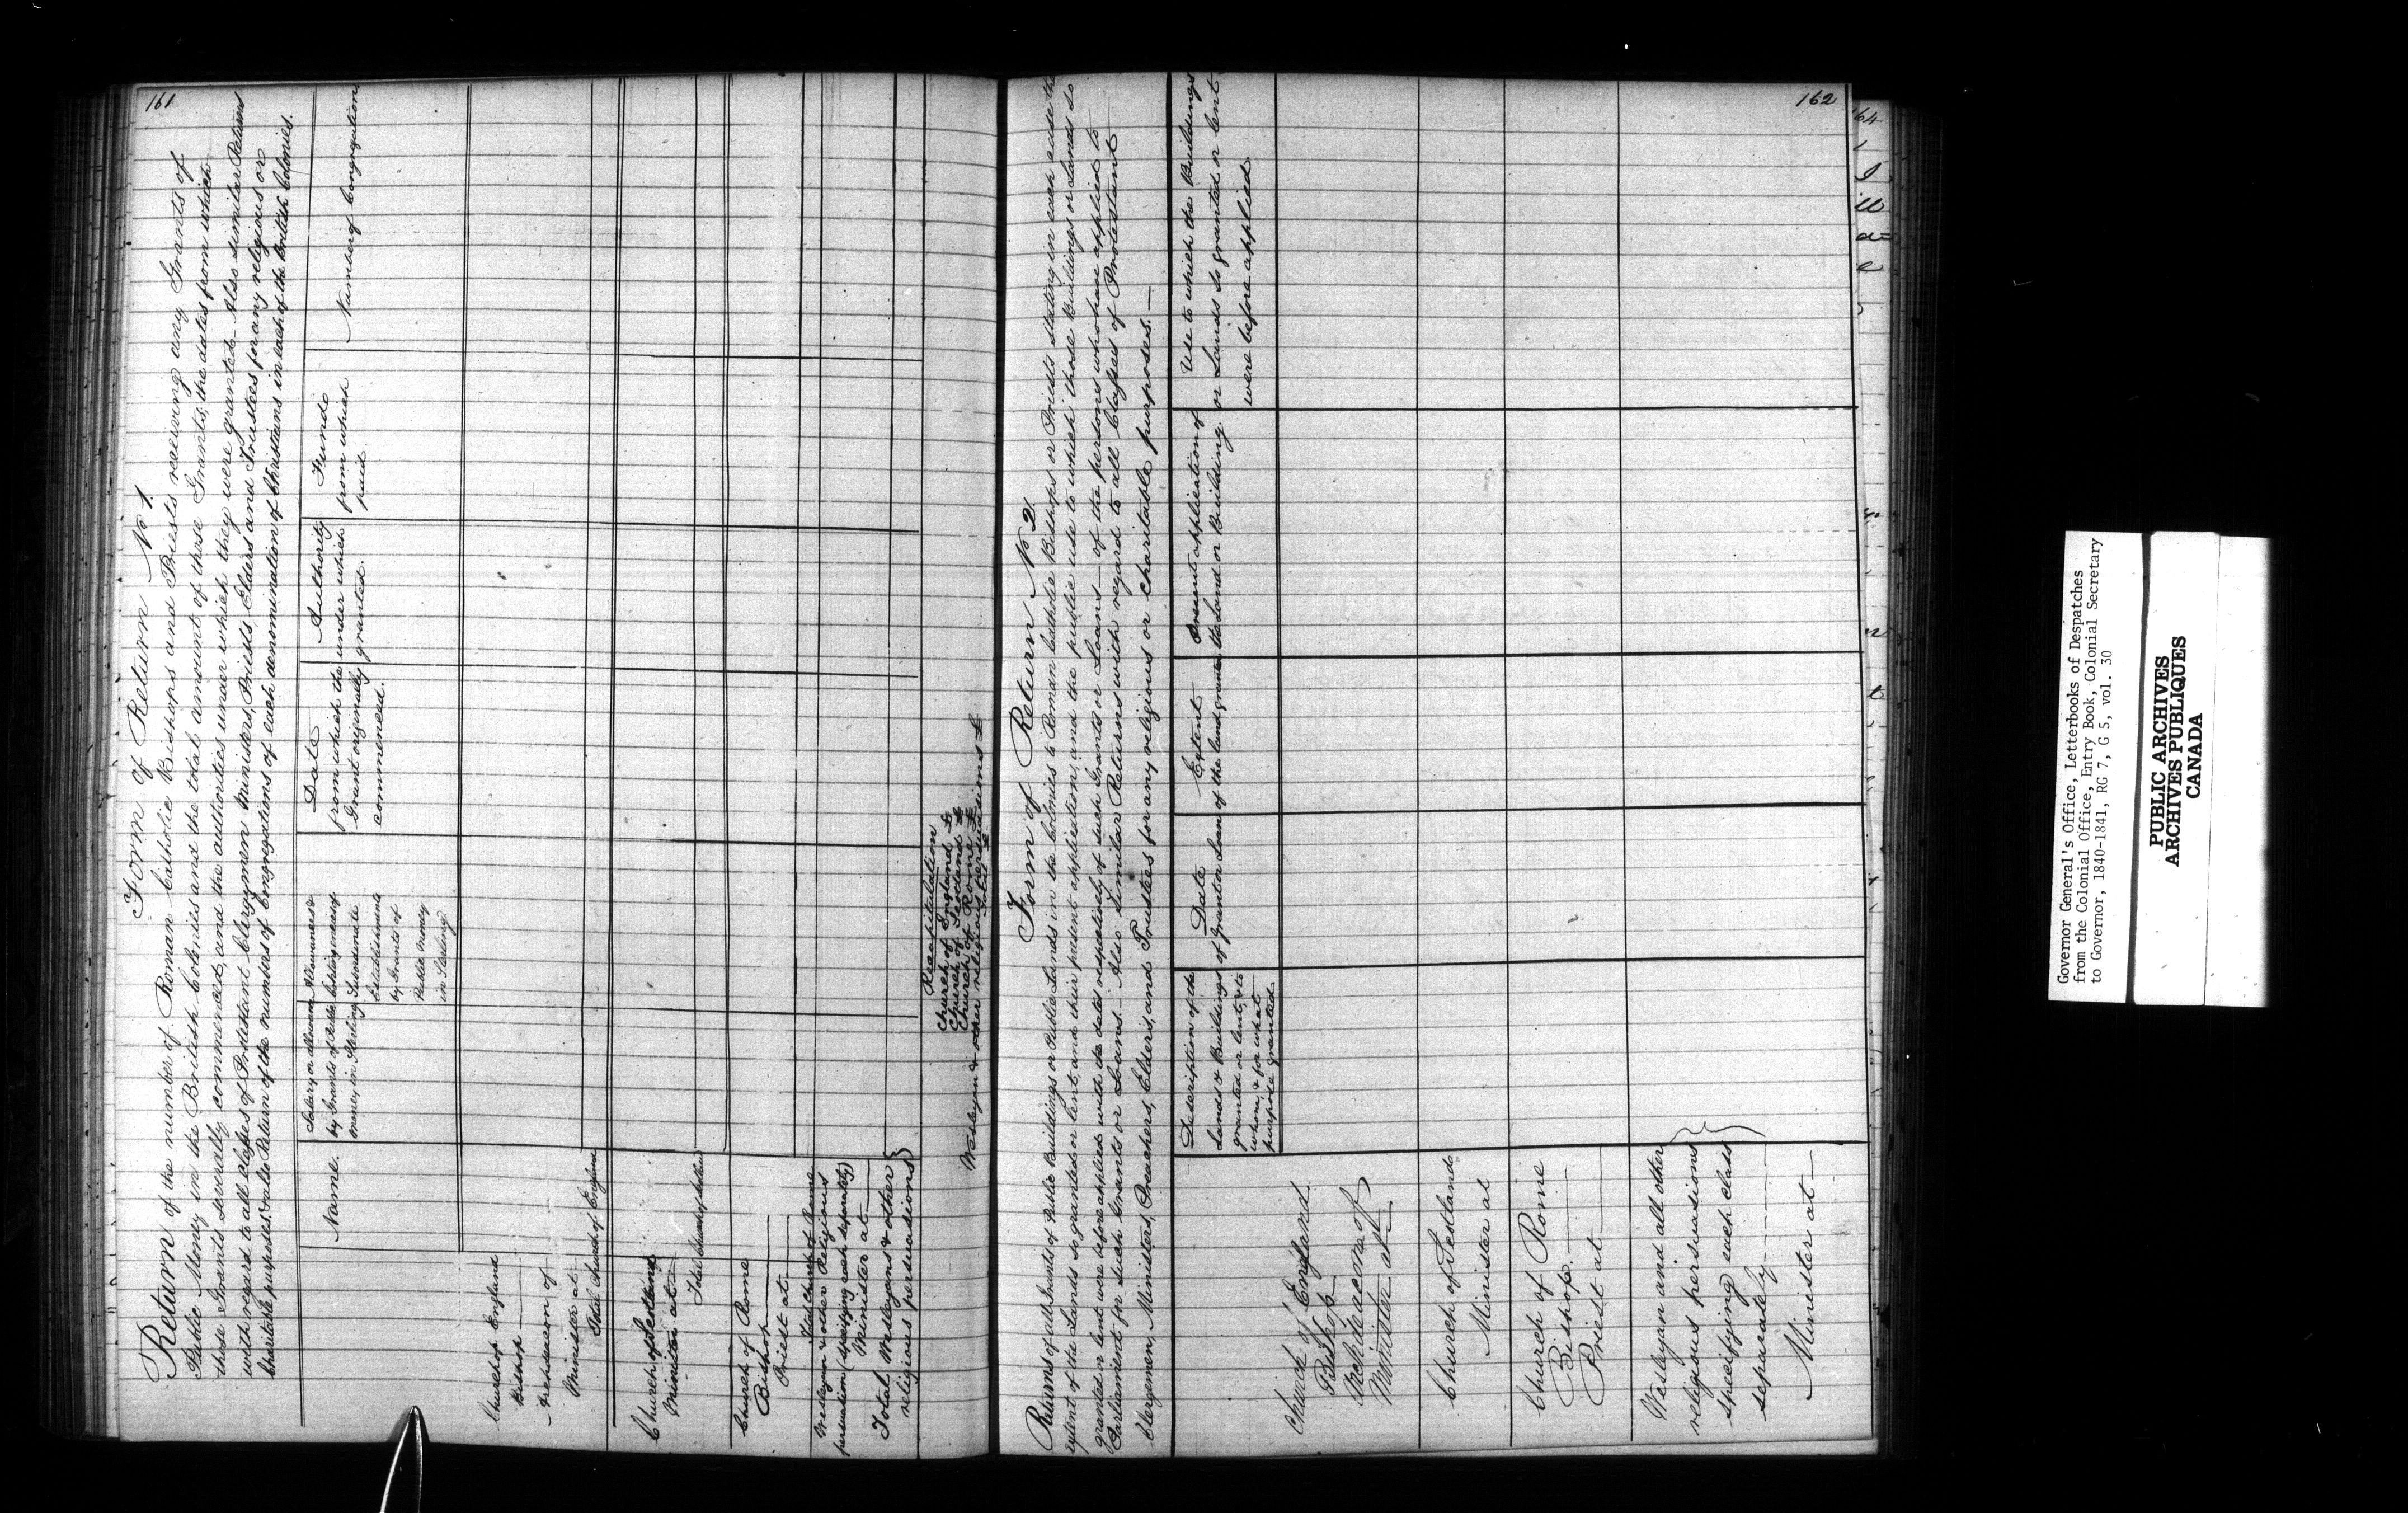 161
Form of Return No 1.
Return of the number of Roman Catholic Bishops and Priests receiving any Grants of
Public Money in the British Colonies and the total amount of those Grants, the dates from which
those Grants severally commenced, and the authorities under which they were granted. Also similar Returns
with regard to all Classes of Protestant Clergymen Ministers, Priests, Elders and Trustees for any religious or
Charitable purposes, & also Return of the numbers of Congregations of each denomination of Christians in each of the British Colonies.
Name.
Salary or allowance
by Grants of Public
money, in Sterling
Allowances &
Subordinate
Establishments
by Grants of
Public Money
in Sterling
Date
from which the
Grant originally
commenced.
Authority
under which
granted.
Funds
from which
paid.
Number of Congregations
Church of England
Bishop
Archdeacon of
Minister at
Total Church of England
Church of Scotland
Minister at
Total Church of Scotland
Church of Rome
Bishop
Priest at
Total Church of Rome
Wesleyan & other Religious
persuasion (specifying each separately)
Minister at
Total Wesleyans & other
religious persuasions
Recapitulation
Church of England £
Church of Scotland £
Church of Rome £
Wesleyan & other religious persuasions £
Total £
162
Form of Return No 2.
Returns of all Grants of Public Buildings or Public Lands in the Colonies to Roman Catholic Bishops or Priests stating in each case the
extent of the Lands so granted or lent, and their present application, and the public use to which those Buildings or Lands so
granted or lent were before applied with the dates respectively of such Grants or Loans — of the persons who have applied to
Parliament for such Grants or Loans. Also similar Returns with regard to all Classes of Protestant
Clergymen, Ministers, Preachers, Elders, and Trustees for any religious or charitable purposes.—
Description of the
Lands & Buildings
granted or lent, & to
whom, & for what
purpose granted.
Date
of Grant or Loan
Extent
of the land granted
Present application of
the Land or Building
Use to which the Buildings
or Lands so granted or lent
were before applied
Church of England.
Bishop
Archdeacon of
Minister at
Church of Scotland
Minister at
Church of Rome
Bishop.
Priest at
Wesleyan and all other
religious persuasions
specifying each class
separately
Minister at
Governor General's Office, Letterbooks of Despatches
from the Colonial Office, Entry Book, Colonial Secretary
to Governor, 1840-1841, RG 7, G 5, vol. 30
PUBLIC ARCHIVES
ARCHIVES PUBLIQUES
CANADA